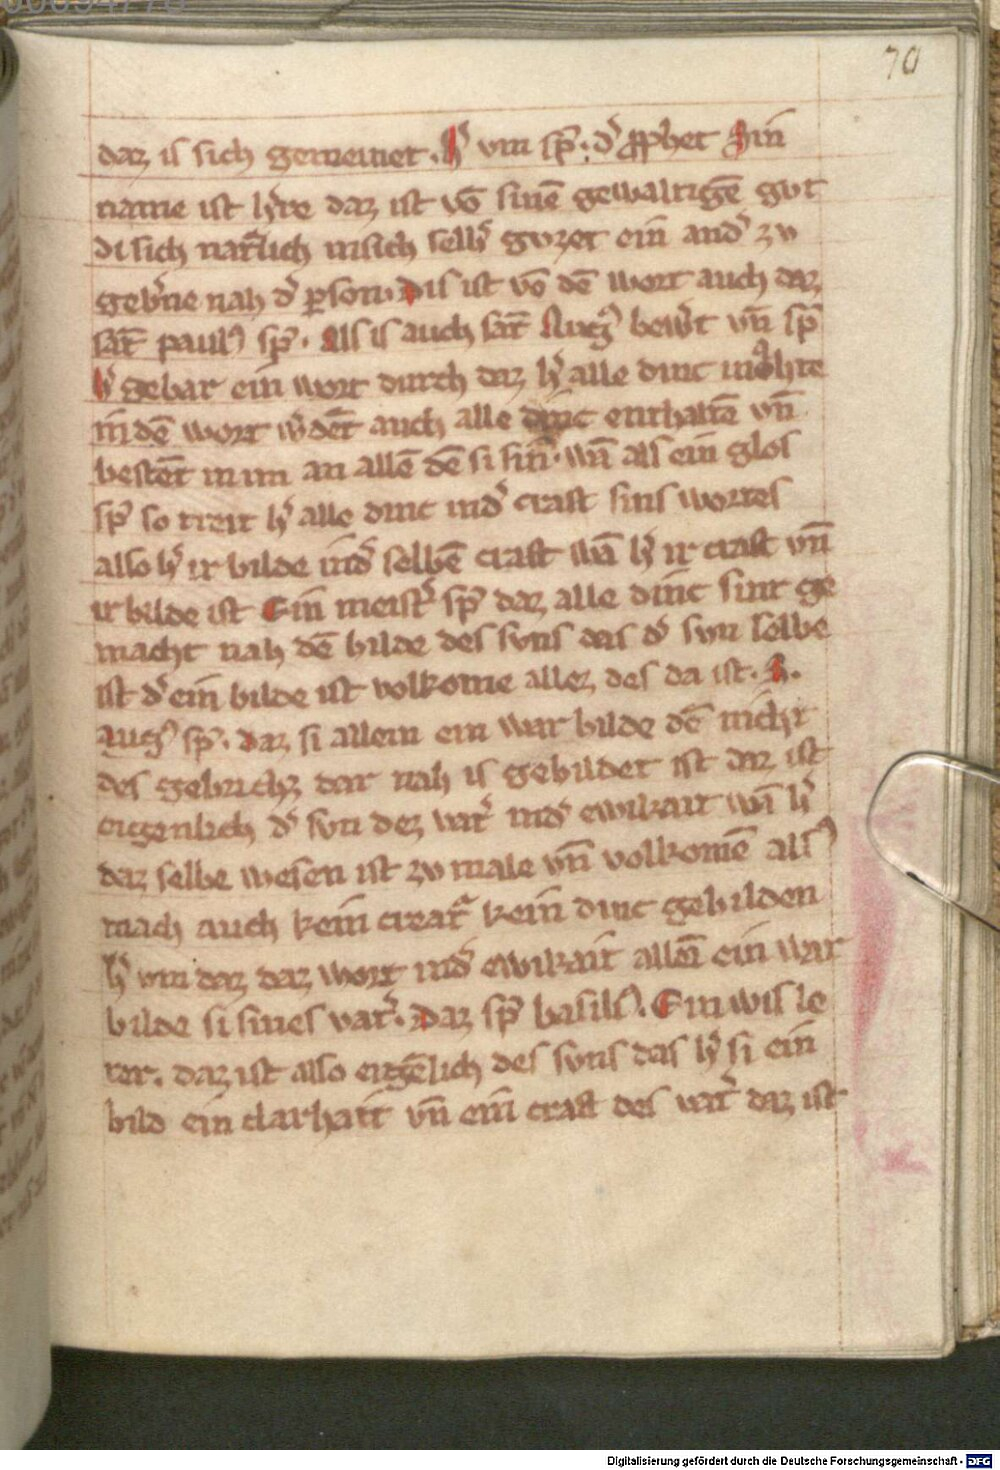 70
daz is sich gemeinet. h͛ vm sp̄. d͛ ꝓphet Sin
name ist h͛re daz ist vō sinē gewaltigē gvt
di sich nat͛lich insich selb͛ gvzet ein and͛ zv
geb͛ne nah d͛ ꝑson. Dis ist vō dē wort auch daz
sāt paulꝰ sp̄. Als is auch sāt Augꝰ bew͛t vn̄ sp̄
h͛ gebar ein wort durch daz h͛ alle dinc
in dē wort w͛dēt auch alle dinc enthaltē vn̄
bestēt in im an allē dē si sin. wā als ein glos
sp̄ so treit h͛ alle dinc ind͛ craft sins wortes
also h͛ ir bilde ind͛ selbē craft wā h͛ ir craft vn̄
ir bilde ist Ein meist͛ sp̄ daz alle dinc sint ge
macht nah dē bilde des svns das d͛ svn selbe
ist d͛ ein bilde ist volkome allez des da ist. S.
Augꝰ sp̄. daz si allein ein war bilde dē nicht
des gebrichz dar nah is gebildet ist daz ist
eigenlich d͛ svn dez vat͛ ind͛ ewikait wā h͛
daz selbe wesen ist zv male vn̄ volkomē alsꝰ
mach auch kein creat͛ kein dinc gebilden
h͛ vm daz daz wort ind͛ ewikait allein ein war
bilde si sines vat͛. Daz sp̄ basilꝰ. Ein wis le
rer. daz ist also eigēlich des svns das h͛ si ein
bild ein clarhait vn̄ ein craft des vat͛ daz ist
Digitalisierung gefördert durch die Deutsche Forschungsgemeinschaft - DFG